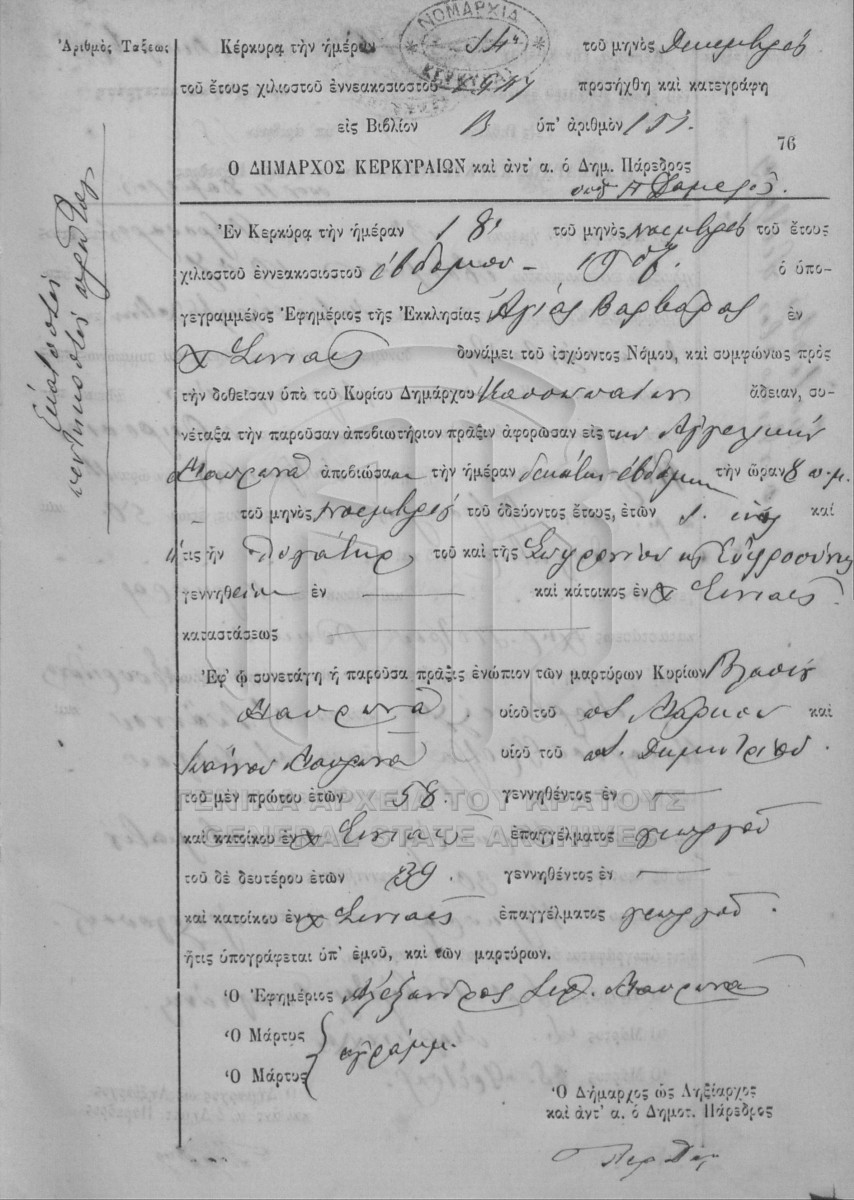 ΝΟΜΑΡΧΙΑ
ΚΕΡΚΥΡΑΣ
Ἀριθμὸς Τάξεως
Κέρκυρα τὴν ἡμέραν 14η τοῦ μηνὸς Δεκεμβρίου
τοῦ ἔτους χιλιοστοῦ ἐννεακοσιοστοῦ προσήχθη καὶ κατεγράφη
εἰς Βιβλίον Β ὑπ' ἀριθμὸν 151.
76
Ο ΔΗΜΑΡΧΟΣ ΚΕΡΚΥΡΑΙΩΝ καὶ ἀντ' α. ὁ Δημ. Πάρεδρος
Ἐν Κερκύρᾳ τὴν ἡμέραν 18 τοῦ μηνὸς Νοεμβρίου τοῦ ἔτους
χιλιοστοῦ ἐννεακοσιοστοῦ ἑβδόμου – 1907. ὁ ὑπο-
γεγραμμένος Ἐφημέριος τῆς Ἐκκλησίας Ἁγίας Βαρβάρας ἐν
χ Σινιαῖς δυνάμει τοῦ ἰσχύοντος Νόμου, καὶ συμφώνως πρὸς
τὴν δοθεῖσαν ὑπὸ τοῦ Κυρίου Δημάρχου Κασσωπαίων ἄδειαν, συ-
νέταξα τὴν παροῦσαν ἀποβιωτήριον πρᾶξιν ἀφορῶσαν εἰς τὴν Ἀγγελικὴν
Μαυρωνᾶ ἀποβιώσασαν τὴν ἡμέραν δεκάτην ἑβδόμην τὴν ὥραν 8 π.μ.
τοῦ μηνὸς Νοεμβρίου τοῦ ὁδεύοντος ἔτους, ἐτῶν 1. ἑνὸς καὶ
ἥτις ἦν θυγάτηρ τοῦ καὶ τῆς Σωφρονίου κ Εὐφροσύνης
γεννηθεῖσα ἐν — καὶ κάτοικος ἐν χ Σινιαῖς.
καταστάσεως —
Ἐφ' ᾧ συνετάγη ἡ παροῦσα πρᾶξις ἐνώπιον τῶν μαρτύρων Κυρίων Βλασίου
Μαυρωνᾶ υἱοῦ τοῦ ποτ. Μάρκου καὶ
Ἰωάννου Μαυρωνᾶ υἱοῦ τοῦ ποτ. Δημητρίου.
τοῦ μὲν πρώτου ἐτῶν 58. γεννηθέντος ἐν —
καὶ κατοίκου ἐν χ Σινιαῖς ἐπαγγέλματος γεωργοῦ
τοῦ δὲ δευτέρου ἐτῶν 39. γεννηθέντος ἐν —
καὶ κατοίκου ἐν χ Σινιαῖς ἐπαγγέλματος γεωργοῦ.
ἥτις ὑπογράφεται ὑπ' ἐμοῦ, καὶ τῶν μαρτύρων.
Ὁ Ἐφημέριος Ἀλέξανδρος Μαυρωνᾶς
Ὁ Μάρτυς
ἀγράμμ.
Ὁ Μάρτυς
Ὁ Δήμαρχος ὡς Ληξίαρχος
καὶ ἀντ' α. ὁ Δημοτ. Πάρεδρος
ΓΕΝΙΚΑ ΑΡΧΕΙΑ ΤΟΥ ΚΡΑΤΟΥΣ
GENERAL STATE ARCHIVES